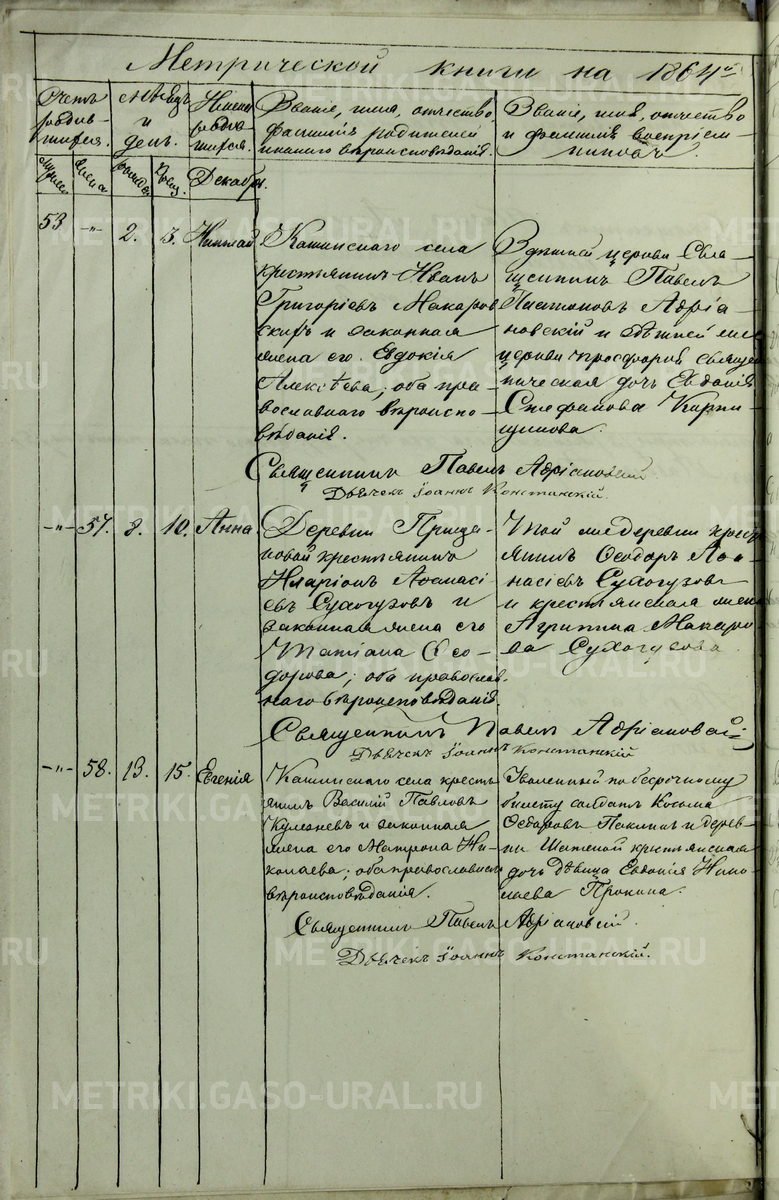 Метрической книги на 1864й
Счетъ родив-шихся.
Мѣсяцъ и день.
Имена родив-шихся.
Званiе, имя, отчество, фамилiя родителей и какого вѣроисповѣданiя.
Званiе, имя, отчество и фамилiя воспрiем-никовъ.
Декабрь.
53 -„- 2. 3. Николай
Кашинскаго села
крестьянинъ Иванъ
Григорiевъ Макаров
скихъ и законная
жена его Евдокiя
Алексѣева; оба пра-
вославнаго вѣроиспо-
вѣданiя.
Здѣшней церкви Свя-
щенникъ Павелъ
Платоновъ Адрiа-
новскiй и здѣшней же
церкви просфорня священ
ническая дочь Евдокiя
Стефанова Кирпи-
щикова.
Священникъ Павелъ Адрiановскiй
Дьячекъ Iоаннъ Констанскiй.
-„- 57. 8. 10. Анна.
Деревни
новой крестьянинъ
Иларiонъ Аѳанасi
евъ Сухогузовъ и
законная жена его
Татiана Ѳео-
дорова; оба православ-
наго вѣроисповѣданiя.
Той же деревни кресть
янинъ Ѳеодоръ Аѳа-
насiевъ Сухогузовъ
и крестьянская жена
Агриппина Макаро-
ва Сухогузова.
Священникъ Павелъ Адрiановскiй
Дьячекъ Iоаннъ Констанскiй
-„- 58. 13. 15. Евгенiя
Кашинскаго села кресть
янинъ Василiй Павловъ
и законная
жена его Матрона Ни-
колаева; оба православнаго
вѣроисповѣданiя.
Уволенный по безсрочному
билету солдатъ Косьма
Ѳедоровъ Паклинъ и дерев-
ни крестьянская
дочь дѣвица Евдокiя Нико
лаева Пронина.
Священникъ Павелъ Адрiановскiй.
Дьячекъ Iоаннъ Констанскiй.
METRIKI.GASO-URAL.RU